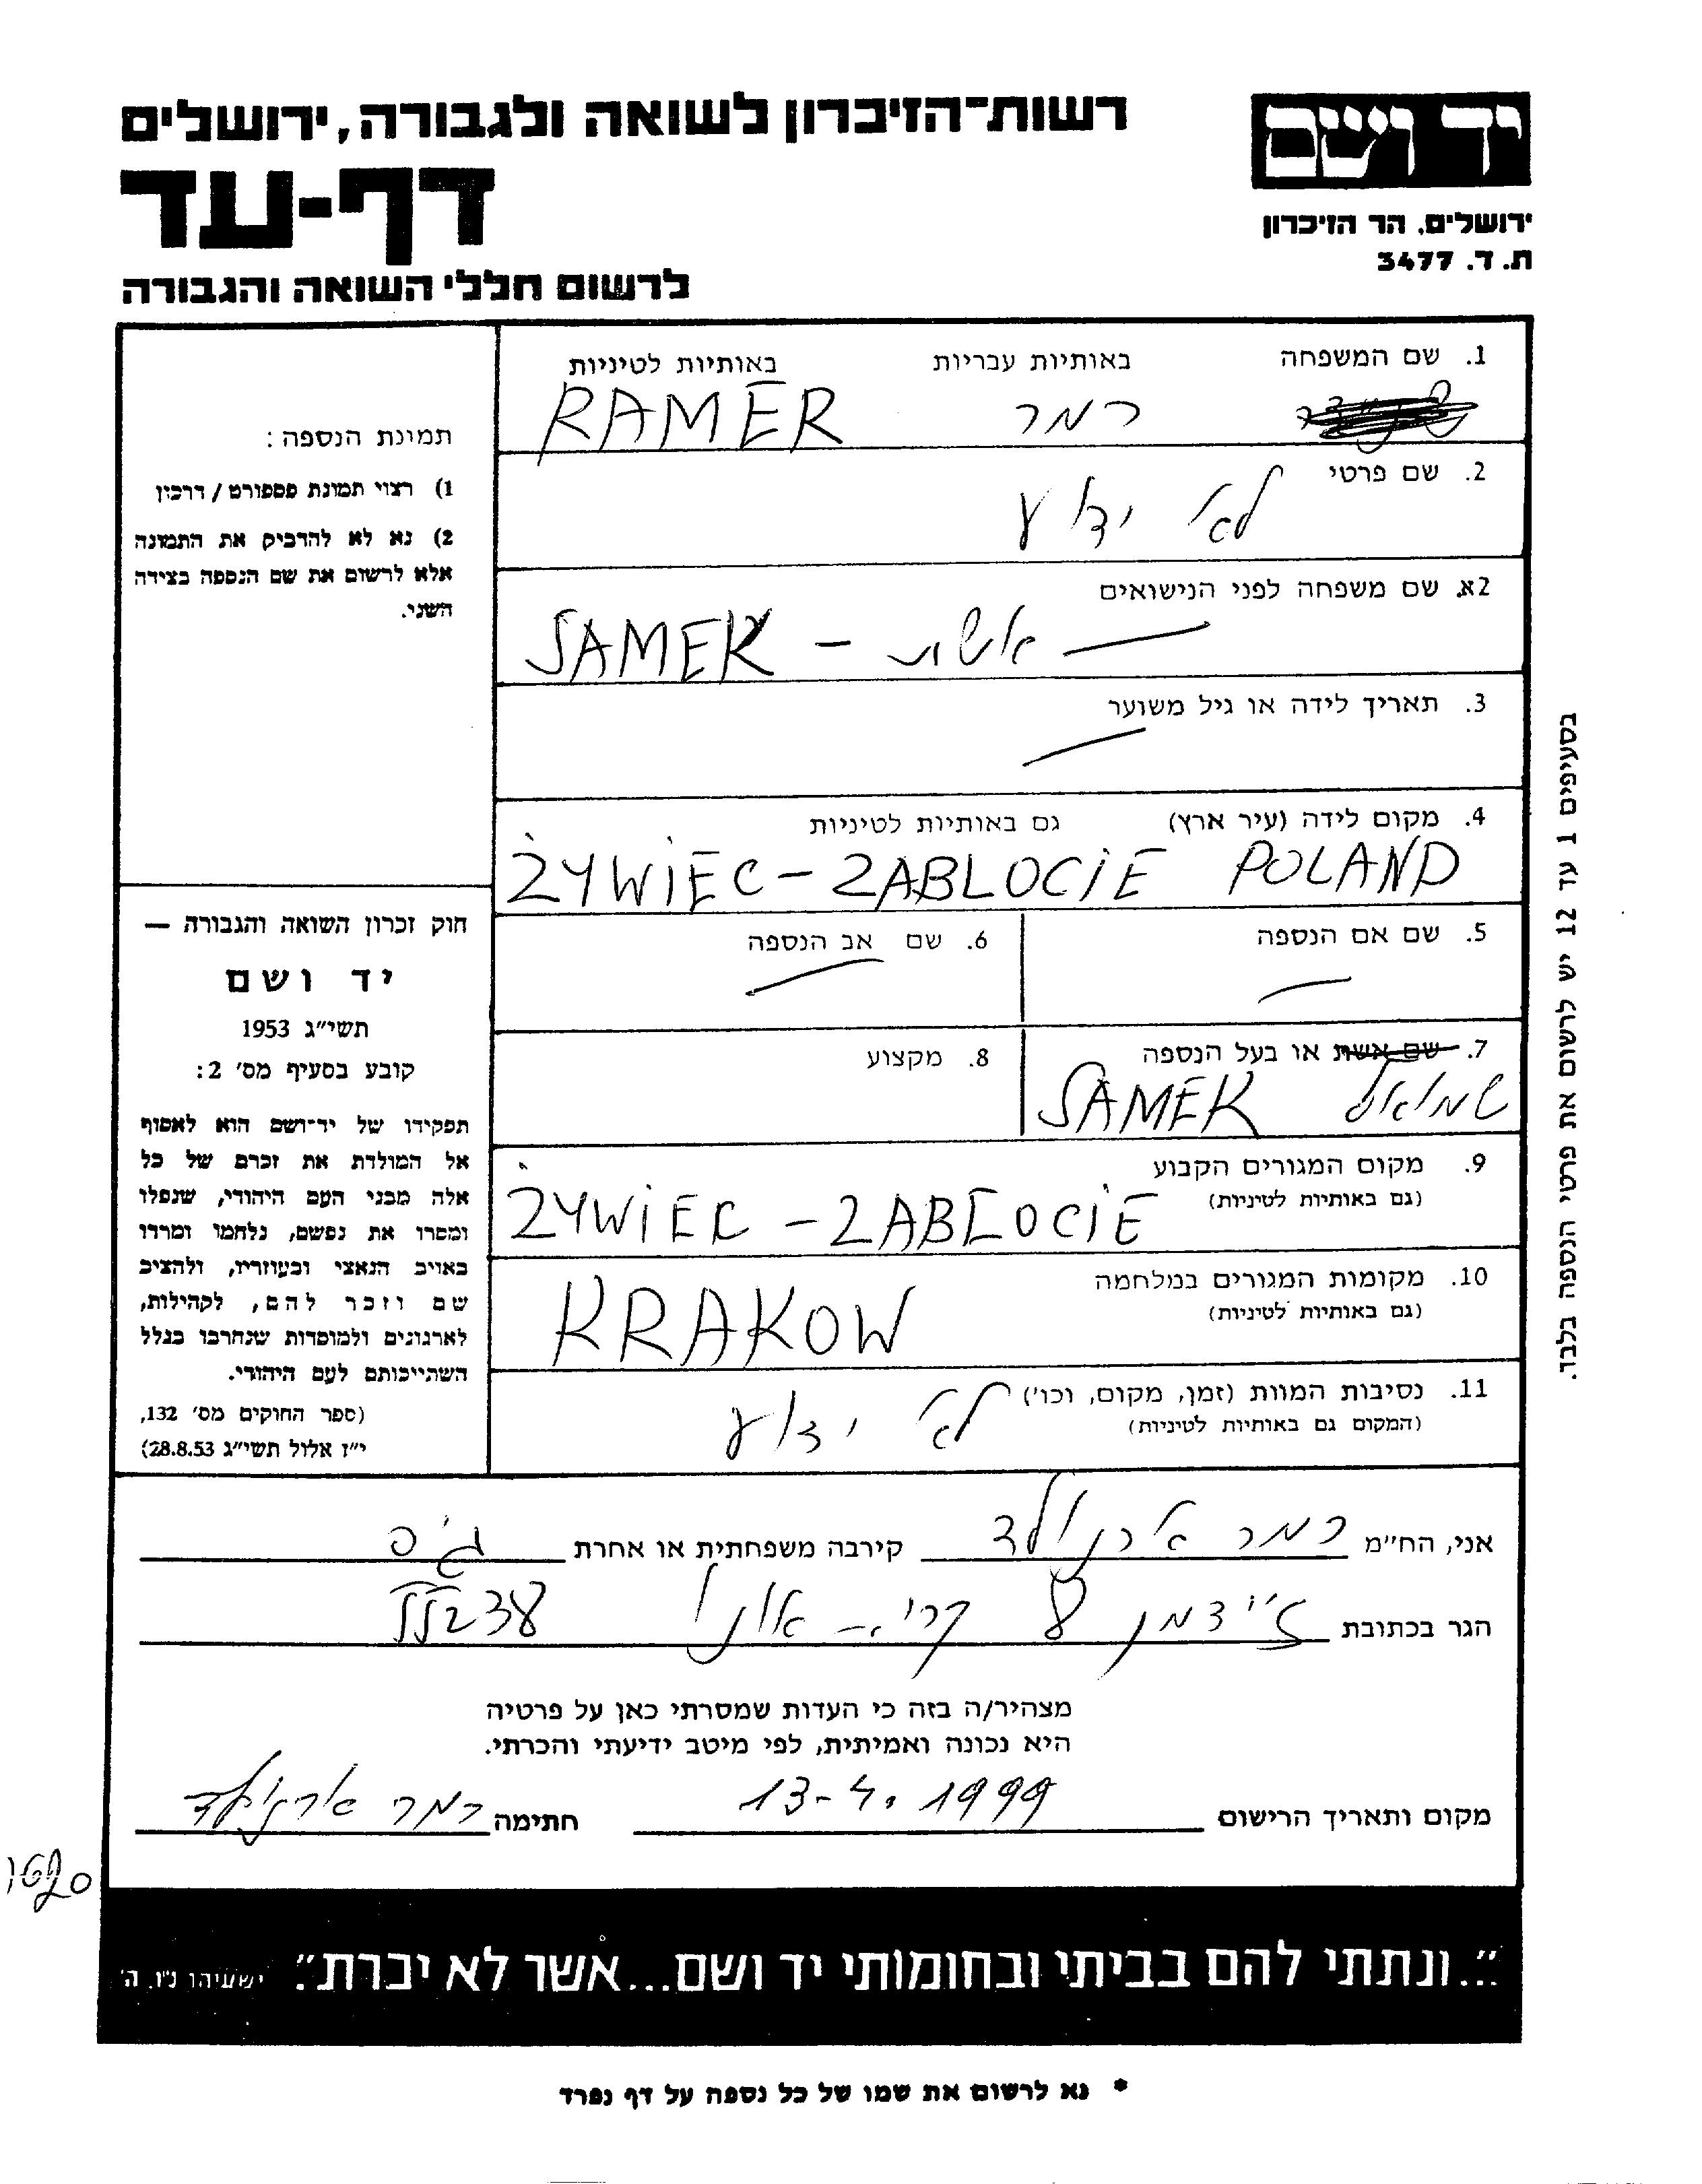 רשות־הזיכרון לשואה ולגבורה, ירושלים
דף-עד
לרשום חללי השואה והגבורה
יד ושם
ירושלים, הר הזיכרון
ת. ד. 3477
1. שם המשפחה באותיות עבריות באותיות לטיניות
רמר RAMER
2. שם פרטי
לא ידוע
2א. שם משפחה לפני הנישואים
SAMEK -
3. תאריך לידה או גיל משוער
4. מקום לידה (עיר ארץ) גם באותיות לטיניות
ŻYWIEC - ZABLOCIE POLAND
5. שם אם הנספה
6. שם אב הנספה
7. שם אשת או בעל הנספה
שמואל SAMEK
8. מקצוע
9. מקום המגורים הקבוע
(גם באותיות לטיניות)
ŻYWIEC - ZABLOCIE
10. מקומות המגורים במלחמה
(גם באותיות לטיניות)
KRAKOW
11. נסיבות המוות (זמן, מקום, וכו')
(המקום גם באותיות לטיניות)
לא ידוע
תמונת הנספה:
1) רצוי תמונת פספורט / דרכון
2) נא לא להדביק את התמונה
אלא לרשום את שם הנספה בצידה
השני.
חוק זכרון השואה והגבורה —
יד ושם
תשי"ג 1953
קובע בסעיף מס' 2:
תפקידו של יד־ושם הוא לאסוף
אל המולדת את זכרם של כל
אלה מבני העם היהודי, שנפלו
ומסרו את נפשם, נלחמו ומרדו
באויב הנאצי ובעוזריו, ולהציב
שם וזכר להם, לקהילות,
לארגונים ולמוסדות שנחרבו בגלל
השתייכותם לעם היהודי.
(ספר החוקים מס' 132,
י"ז אלול תשי"ג 28.8.53)
בסעיפים 1 עד 12 יש לרשום את פרטי הנספה בלבד.
אני, הח"מ רמר ארנולד קירבה משפחתית או אחרת גיס
הגר בכתובת זיידמן 8 קרית-אונו 55238
מצהיר/ה בזה כי העדות שמסרתי כאן על פרטיה
היא נכונה ואמיתית, לפי מיטב ידיעתי והכרתי.
מקום ותאריך הרישום 13-4.1999 חתימה רמר ארנולד
"...ונתתי להם בביתי ובחומותי יד ושם...אשר לא יכרת". ישעיהו נ"ו, ה'
* נא לרשום את שמו של כל נספה על דף נפרד